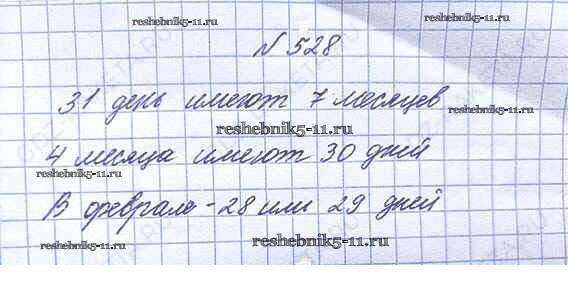 reshebnik5-11.ru
№ 528
31 день имеют 7 месяцев
reshebnik5-11.ru
reshebnik5-11.ru
4 месяца имеют 30 дней
reshebnik5-11.ru
reshebnik5-11.ru
В феврале - 28 или 29 дней
reshebnik5-11.ru
reshebnik5-11.ru